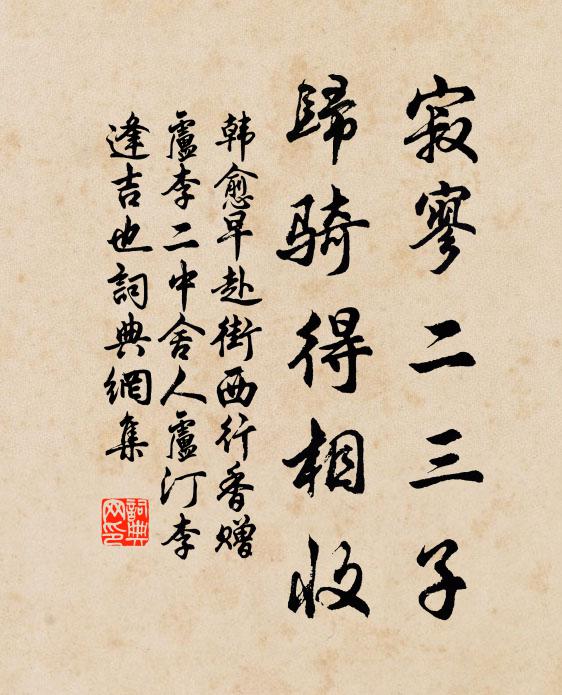 寂寥二三子
歸騎得相收
韩愈早赴街西行香赠
盧李二中舍人盧汀李
逢吉也詞典網集
詞典
网印